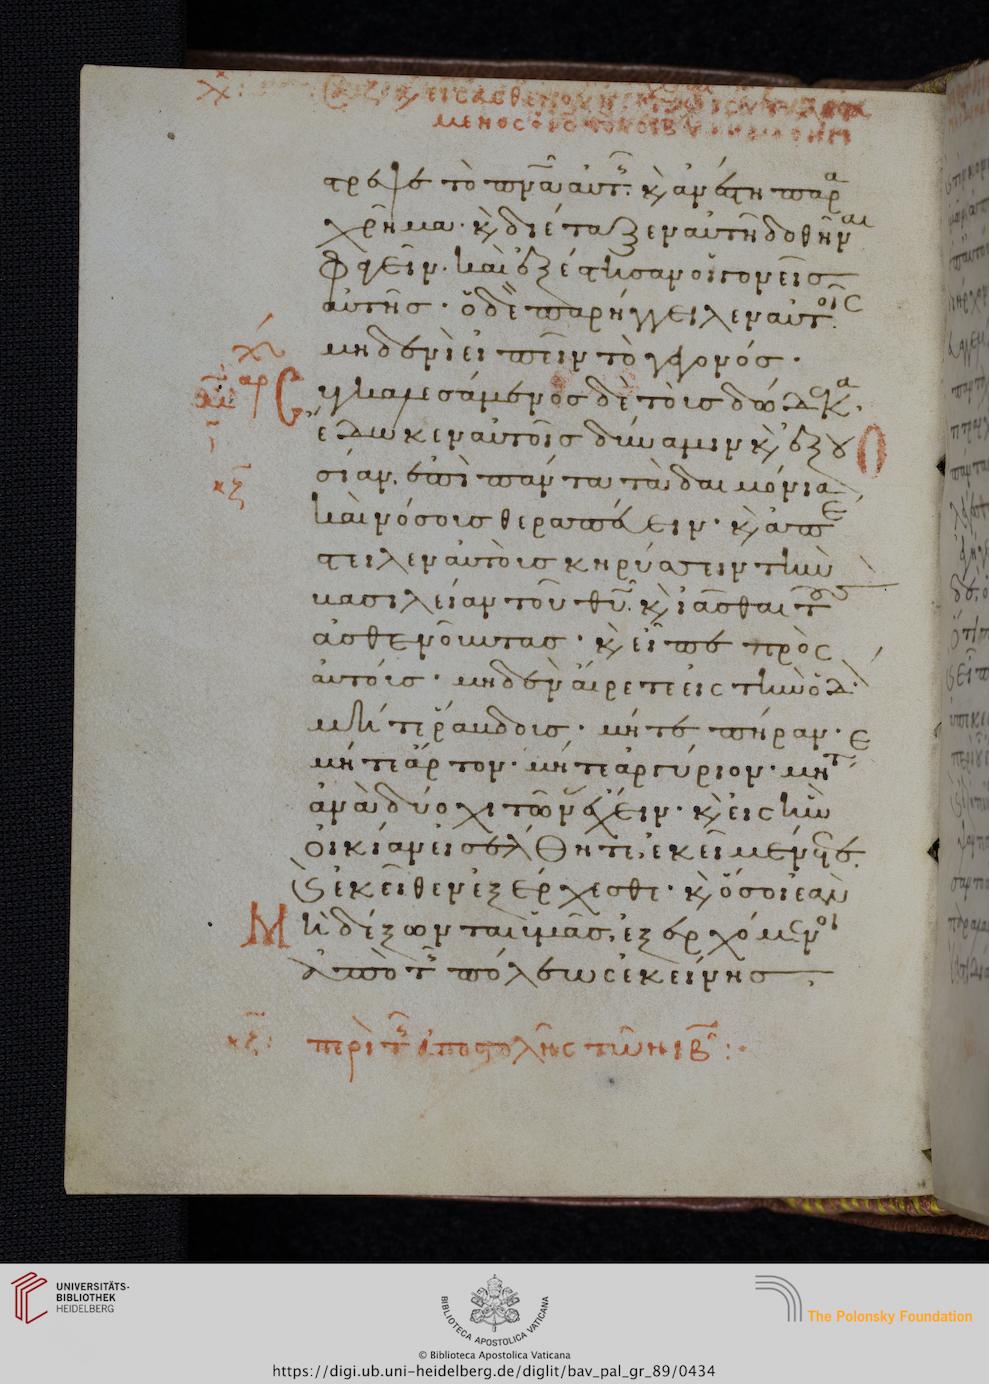 τρεψε το πνᾱ αυτῆς· κ̀ ανέστη παρα
χρῆμα· κ̀ διέταξεν αυτῆ δοθῆναι
φαγεῖν· καὶ εξέστησαν οἱ γονεῖς
αυτῆς· ὁ δὲ παρήγγειλεν αυτοῖς
μηδενὶ ειπεῖν τὸ γεγονός·
Συγκαλεσάμενος δὲ τοὺς δώδεκα·
έδωκεν αυτοῖς δύναμιν κ̀ εξου
σίαν, επὶ πάντα τὰ δαιμόνια
καὶ νόσους θεραπεύειν· κ̀ απέ
στειλεν αυτοὺς κηρύσσειν τὴν
βασιλείαν τοῦ θῡ· κ̀ ιᾶσθαι τοὺς
ασθενοῦντας· κ̀ εἶπε πρὸς
αυτούς· μηδὲν αίρετε εις τὴν ὁδόν·
μήτε ράβδους· μήτε πήραν·
μήτε άρτον· μήτε αργύριον· μήτε
ανὰ δύο χιτῶνας έχειν· κ̀ εις ἣν
οικίαν εισέλθητε, εκεῖ μένετε·
κ̀ εκεῖθεν εξέρχεσθε· κ̀ ὅσοι εαν
Μὴ δέξωνται ὑμᾶς, εξερχόμενοι
απὸ τῆς πόλεως εκείνης
περὶ τῆς αποστολῆς τῶν ιβ:·
UNIVERSITÄTS-
BIBLIOTHEK
HEIDELBERG
BIBLIOTECA APOSTOLICA VATICANA
The Polonsky Foundation
© Biblioteca Apostolica Vaticana
https://digi.ub.uni-heidelberg.de/diglit/bav_pal_gr_89/0434